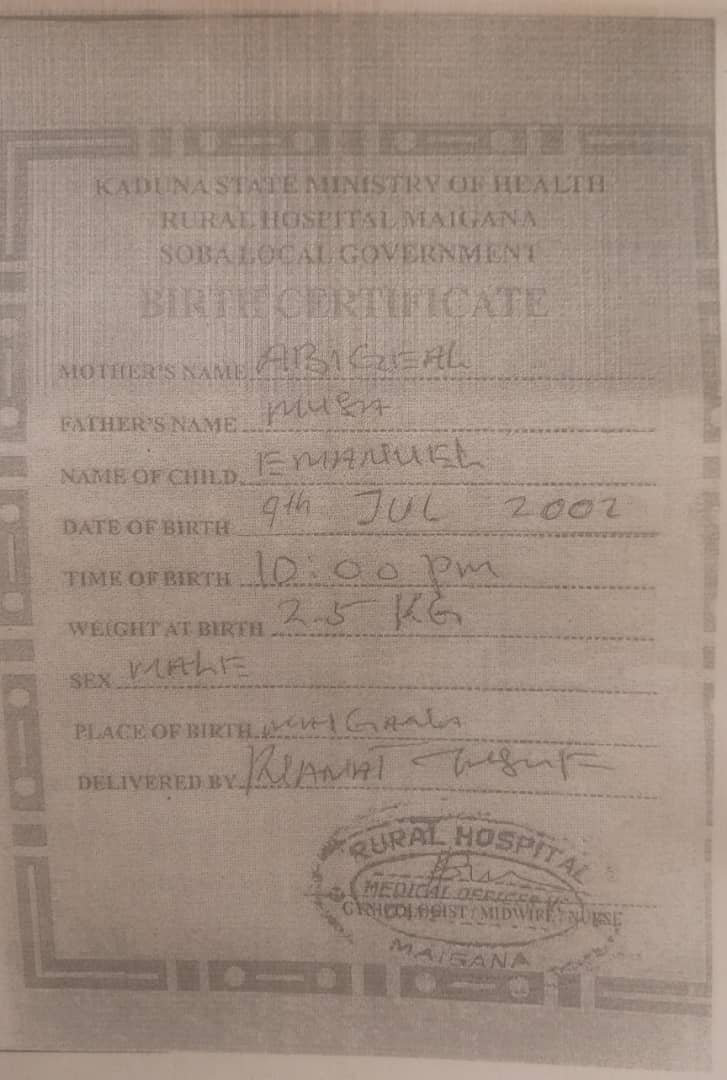 KADUNA STATE MINISTRY OF HEALTH
RURAL HOSPITAL MAIGANA
SOBA LOCAL GOVERNMENT
BIRTH CERTIFICATE
MOTHER'S NAME ABIGEAL
FATHER'S NAME MUSA
NAME OF CHILD EMANUEL
DATE OF BIRTH 9th JUL 2002
TIME OF BIRTH 10:00 pm
WEIGHT AT BIRTH 2.5 KG
SEX MALE
PLACE OF BIRTH MAIGANA
DELIVERED BY
RURAL HOSPITAL
MEDICAL OFFICER
GYNECOLOGIST / MIDWIFE / NURSE
MAIGANA